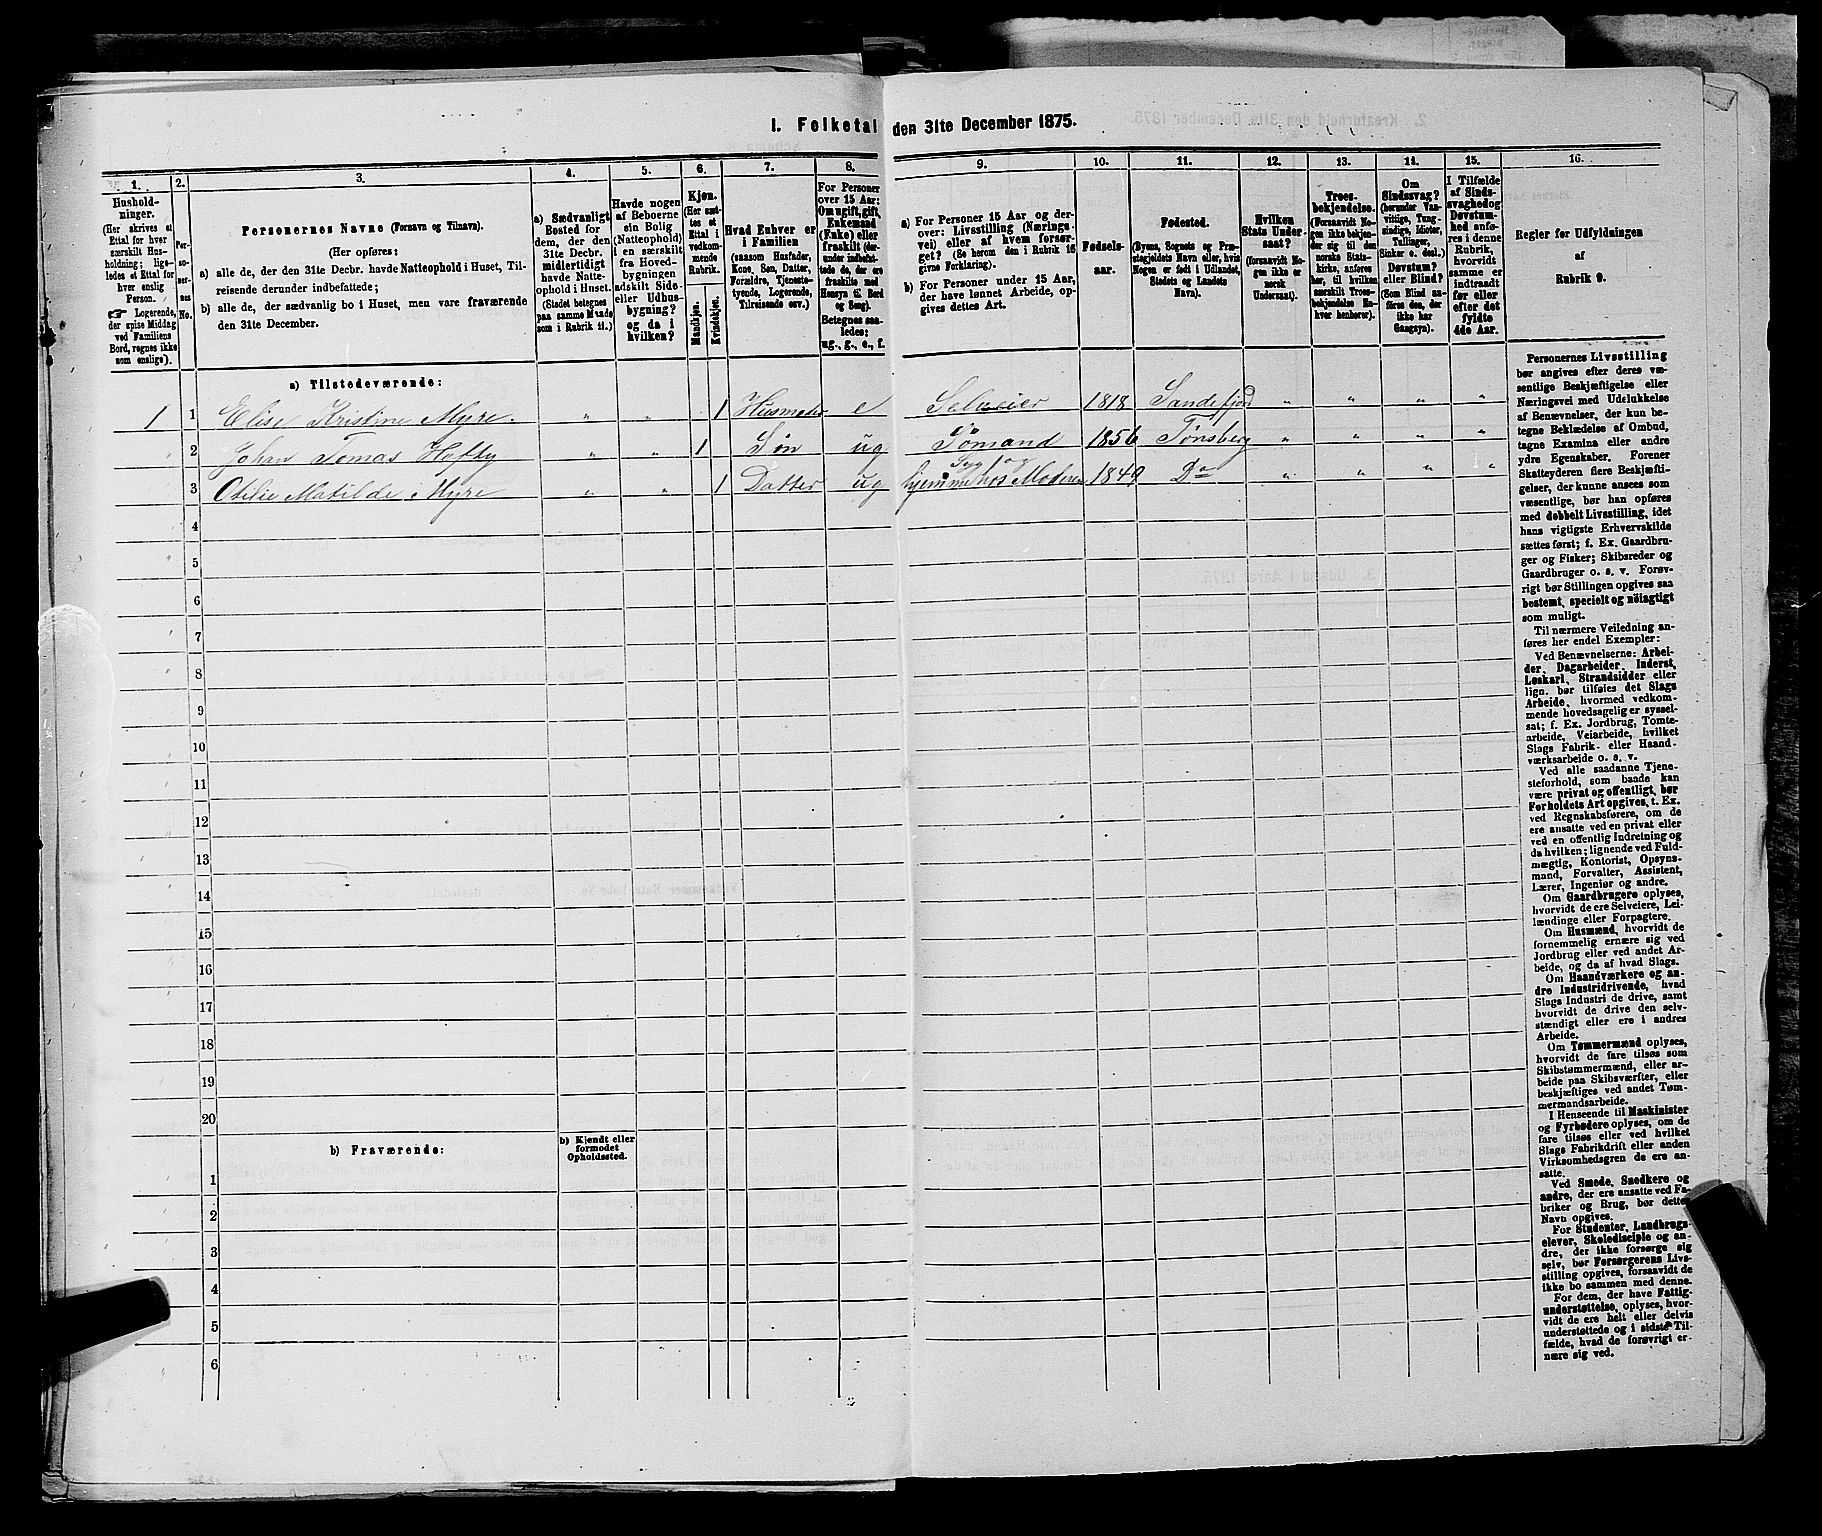 I. Folketal den 31te December 1875.
1. 2. 3. 4. 5. 6. 7. 8. 9. 10. 11. 12. 13. 14. 15. 16.
Husholdninger.
(Her skrives et
Ettal for hver
særskilt Hus-
holdning; lige-
ledes et Ettal for
hver enslig
Person.
☞ Logerende,
der spise Middag
ved Familiens
Bord, regnes ikke
som enslige).
Per-
so-
ner-
nes
No.
Personernes Navne (Fornavn og Tilnavn).
(Her opføres:
a) alle de, der den 31te Decbr. havde Natteophold i Huset, Til-
reisende derunder indbefattede;
b) alle de, der sædvanlig bo i Huset, men vare fraværende
den 31te December.
a) Sædvanligt
Bosted for
dem, der den
31te Decbr.
midlertidigt
havde Natte-
ophold i Huset.
(Stedet betegnes
paa samme Maade
som i Rubrik 11.)
Havde nogen
af Beboerne
sin Bolig
(Natteophold)
i en særskilt
fra Hoved-
bygningen
adskilt Side-
eller Udhus-
bygning?
og da i
hvilken?
Kjøn.
(Her sæt-
tes et
Ettal i
vedkom-
mende
Rubrik.
Mandkjøn.
Kvindekjøn.
Hvad Enhver er
i Familien
(saasom Husfader,
Kone, Søn, Datter,
Forældre, Tjeneste-
tyende, Logerende,
Tilreisende osv.)
For Personer
over 15 Aar:
Om ugift, gift,
Enkemand
(Enke) eller
fraskilt (der-
under indbefat-
tede de, der ere
fraskilte med
Hensyn til Bord
og Seng).
Betegnes saa-
ledes:
ug., g., e., f.
a) For Personer 15 Aar og der-
over: Livsstilling (Nærings-
vei) eller af hvem forsør-
get? (Se herom den i Rubrik 16
givne Forklaring).
b) For Personer under 15 Aar,
der have lønnet Arbeide, op-
gives dettes Art.
Fødsels-
aar.
Fødested.
(Byens, Sognets og Præ-
stegjeldets Navn eller, hvis
Nogen er født i Udlandet,
Stedets og Landets
Navn).
Hvilken
Stats Under-
saat?
(forsaavidt No-
gen ikke er
norsk
Undersaat).
Troes-
bekjendelse.
(Forsaavidt No-
gen ikke bekjen-
der sig til den
norske Stats-
kirke, anføres
her, til hvilken
særskilt Troes-
bekjendelse En-
hver henhører).
Om
Sindssvag?
(herunder Van-
vittige, Tung-
sindige, Idioter,
Tullinger,
Sinker o. desl.)
Døvstum?
eller Blind?
(Som Blind an-
føres den, der
ikke har
Gangsyn).
I Tilfælde
af Sinds-
svaghed og
Døvstum-
hed anfø-
res i denne
Rubrik,
hvorvidt
samme er
indtraadt
før eller
efter det
fyldte
4de Aar.
Regler for Udfyldningen
af
Rubrik 9.
a) Tilstedeværende:
1 1 Elise Kristine Myre. " " 1 Husmoder e Selveier 1818 Sandefjord " " " "
2 Johan Tomas Hofty " " 1 Søn ug Sömand 1856 Tønsberg " " " "
3 Otilie Matilde Myre " " 1 Datter ug Syg og hjemme hos Moderen 1849 Do " " " "
4
5
6
7
8
9
10
11
12
13
14
15
16
17
18
19
20
b) Fraværende:
b) Kjendt eller
formodet
Opholdssted.
1
2
3
4
5
6
Personernes Livsstilling
bør angives efter deres væ-
sentlige Beskjæftigelse eller
Næringsvei med Udelukkelse
af Benævnelser, der kun be-
tegne Beklædelse af Ombud,
tagne Examina eller andre
ydre Egenskaber. Forener
Skatteyderen flere Beskjæfti-
gelser, der kunne ansees som
væsentlige, bør han opføres
med dobbelt Livsstilling, idet
hans vigtigste Erhvervskilde
sættes først; f. Ex. Gaardbru-
ger og Fisker; Skibsreder og
Gaardbruger o. s. v. Forøv-
rigt bør Stillingen opgives saa
bestemt, specielt og nöiagtigt
som muligt.
Til nærmere Veiledning an-
føres her endel Exempler:
Ved Benævnelserne: Arbei-
der, Dagarbeider, Inderst,
Løskarl, Strandsidder eller
lign. bør tilføies det Slags
Arbeide, hvormed vedkom-
mende hovedsagelig er syssel-
sat; f. Ex. Jordbrug, Tomte-
arbeide, Veiarbeide, hvilket
Slags Fabrik- eller Haand-
værksarbeide o. s. v.
Ved alle saadanne Tjene-
steforhold, som baade kan
være privat og offentligt, bør
Forholdets Art opgives, t. Ex.
ved Regnskabsførere, om de
ere ansatte ved en privat eller
ved en offentlig Indretning og
da hvilken; lignende ved Fuld-
mægtig, Kontorist, Opsyns-
mand, Forvalter, Assistent,
Lærer, Ingeniør og andre.
Om Gaardbrugere oplyses,
hvorvidt de ere Selveiere, Lei-
lændinge eller Forpagtere.
Om Husmænd, hvorvidt de
fornemmelig ernære sig ved
Jordbrug eller ved andet Ar-
beide, og da af hvad Slags.
Om Haandværkere og an-
dre Industridrivende, hvad
Slags Industri de drive, samt
hvorvidt de drive den selv-
stændigt eller ere i andres
Arbeide.
Om Tømmermænd oplyses,
hvorvidt de fare tilsøs som
Skibstømmermænd, eller ar-
beide paa Skibsværfter, eller
beskjæftiges ved andet Tøm-
mermandsarbeide.
I Henseende til Maskinister
og Fyrbødere oplyses, om de
fare tilsøs eller ved hvilket
Slags Fabrikdrift eller anden
Virksomhedsgren de ere an-
satte.
Ved Smede, Snedkere og
andre, der ere ansatte ved Fa-
briker og Brug, bør dettes
Navn opgives.
For Studenter, Landbrugs-
elever, Skoledisciple og an-
dre, der ikke forsørge sig
selv, bør Forsørgerens Livs-
stilling opgives, forsaavidt de
ikke bo sammen med denne.
For dem, der have Fattig-
understøttelse, oplyses, hvor-
vidt de ere helt eller delvis
understøttede og i sidste Til-
fælde, hvad de forøvrigt er-
nære sig ved.